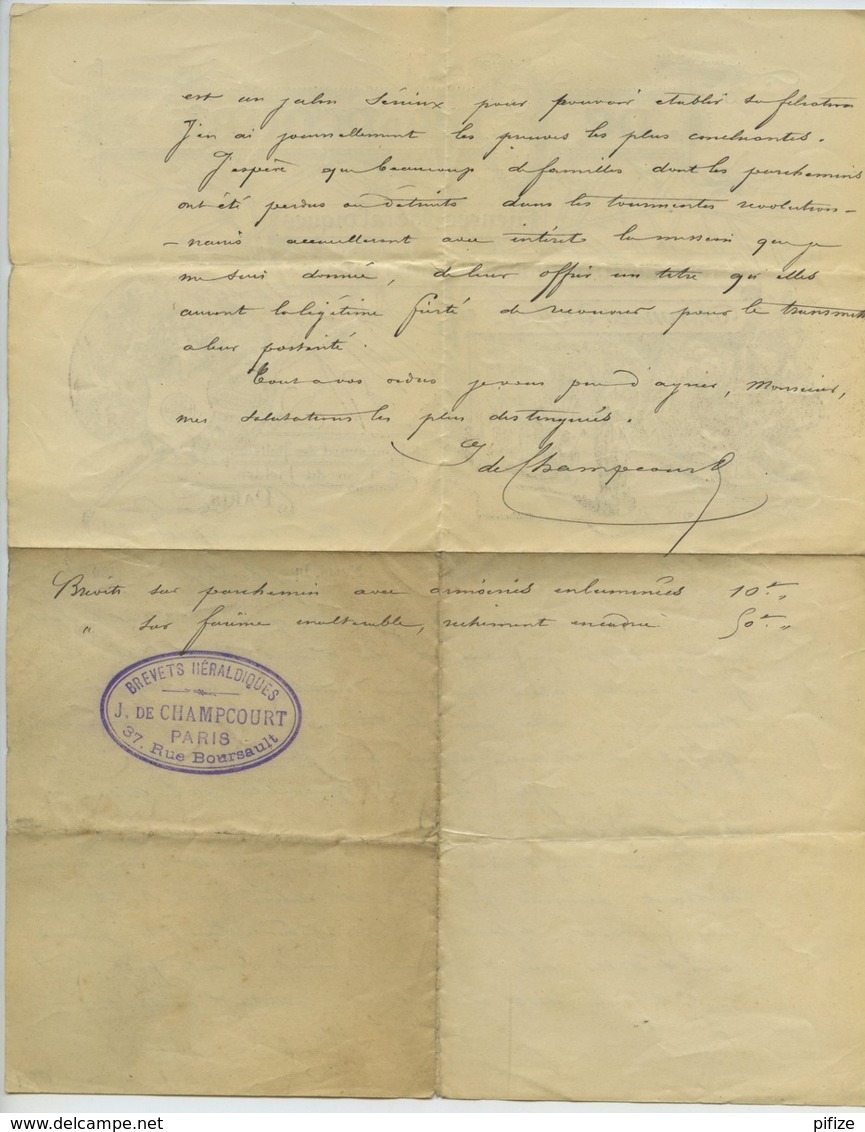 est un jalon sérieux pour pouvoir établir sa filiation
J'en ai journellement les preuves les plus concluantes.
J'espère que beaucoup de familles dont les parchemins
ont été perdus ou détruits dans les tourmentes revolution-
-naires accueilleront avec intérêt la mission que je
me suis donnée, de leur offrir un titre qu'elles
auront la légitime fierté de recouvrer pour le transmett
a leur postérité.
Tout a vos ordres je vous prie d'agréer, Monsieur,
mes salutations les plus distinguées.
J de Champcourt
Brevets sur parchemin avec armoiries enluminées 10f „
„ sur inaltérable, richement encadré 50f „
BREVETS HÉRALDIQUES
J. DE CHAMPCOURT
PARIS
37. Rue Boursault
pifize